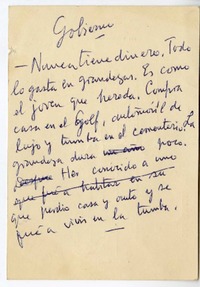 Gobierno
— Nunca tiene dinero. Todo
lo gasta en grandezas. Es como
el joven que hereda. Compra
casa en el Golf, automóvil de
lujo y tumba en el cementerio. La
grandeza dura un año poco.
He conocido a uno
que fué a habitar en su
que perdió casa y auto y se
fué a vivir en la tumba.